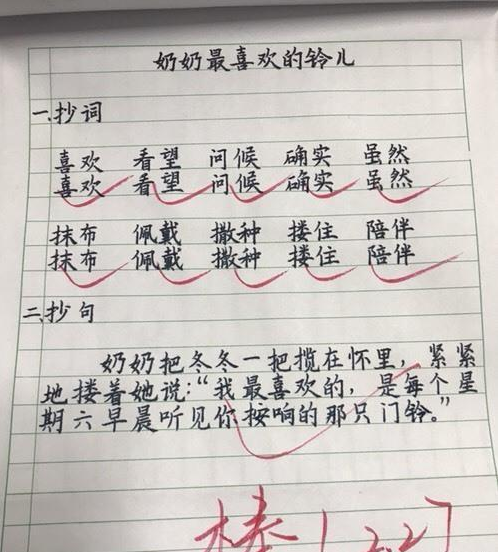 奶奶最喜欢的铃儿
一.抄词
喜欢 看望 问候 确实 虽然
喜欢 看望 问候 确实 虽然
抹布 佩戴 撒种 搂住 陪伴
抹布 佩戴 撒种 搂住 陪伴
二.抄句
奶奶把冬冬一把揽在怀里，紧紧
地搂着她说：“我最喜欢的，是每个星
期六早晨听见你按响的那只门铃。”
棒 12.27